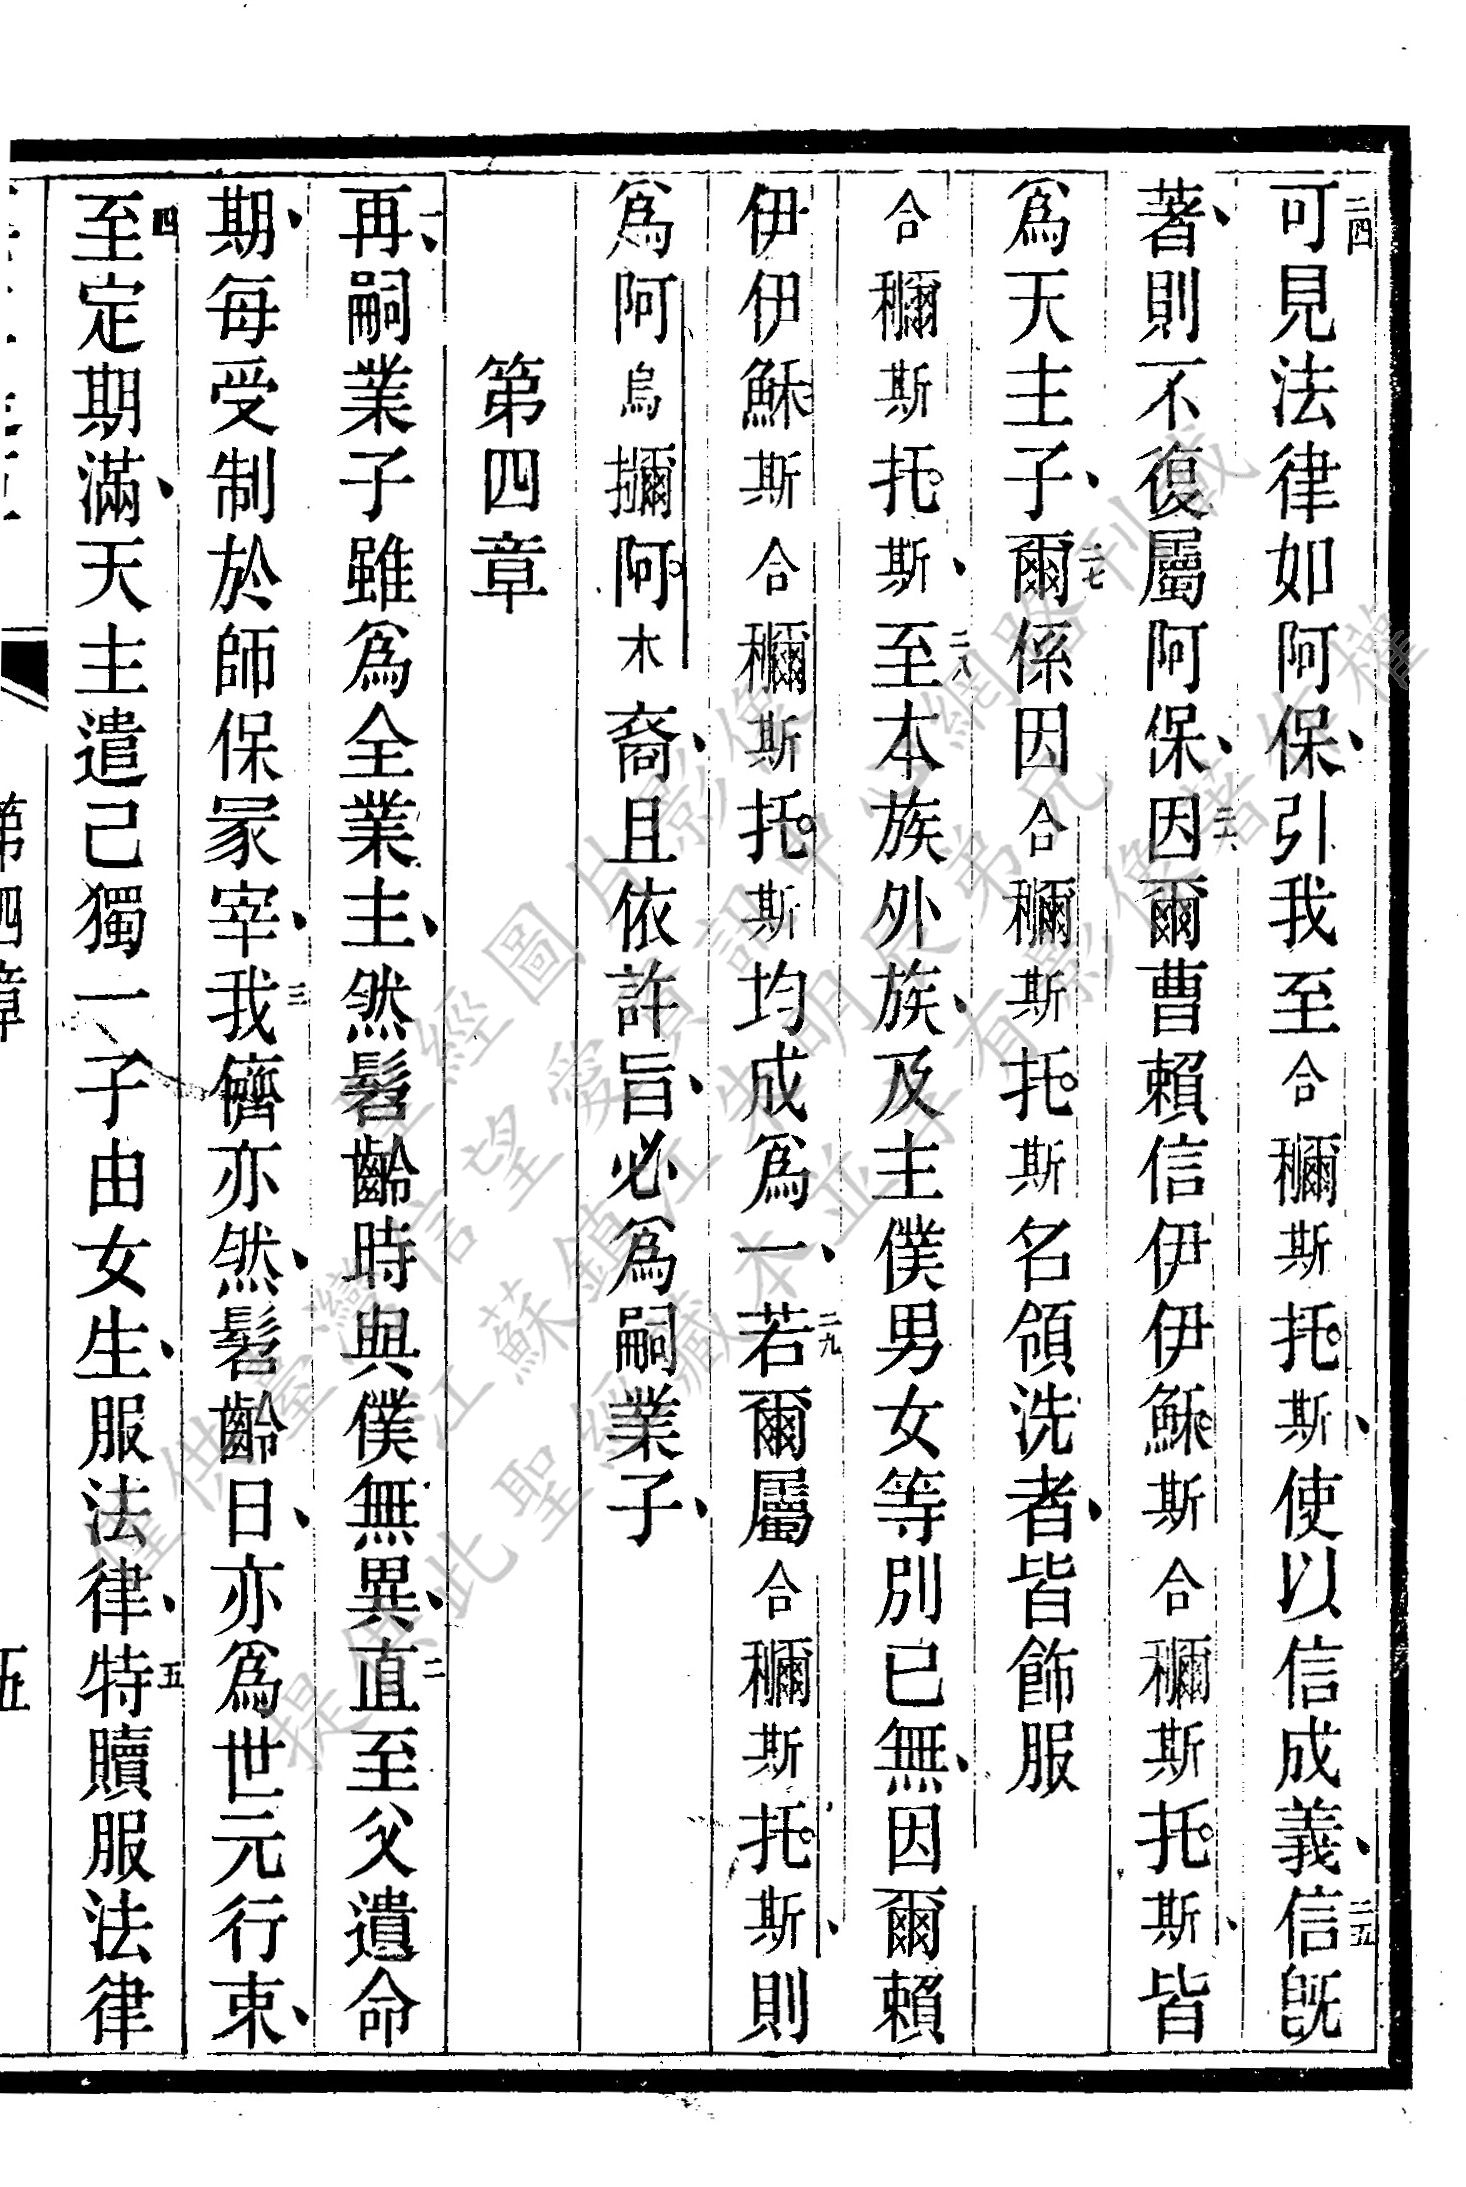 二四可見法律如阿保、引我至合穪斯托斯、使以信成義、二五信旣
著、則不復屬阿保、二六因爾曹賴信伊伊穌斯合穪斯托斯、皆
爲天主子、二七爾係因合穪斯托斯名領洗者、皆飾服
合穪斯托斯、二八至本族外族、及主僕男女等別已無、因爾賴
伊伊穌斯合穪斯托斯均成爲一、二九若爾屬合穪斯托斯、則
爲阿烏擟阿木裔、且依許旨、必爲嗣業子、
第四章
一、再嗣業子雖爲全業主、然髫齡時與僕無異、二直至父遺命
期、每受制於師保冡宰、三我儕亦然、髫齡日、亦爲世元行束、
四至定期滿、天主遣己獨一子由女生、服法律、五特贖服法律
第四章
五
僅供臺灣信望愛資訊中心網路刊載
提供此聖經藏本並享有影像著作權